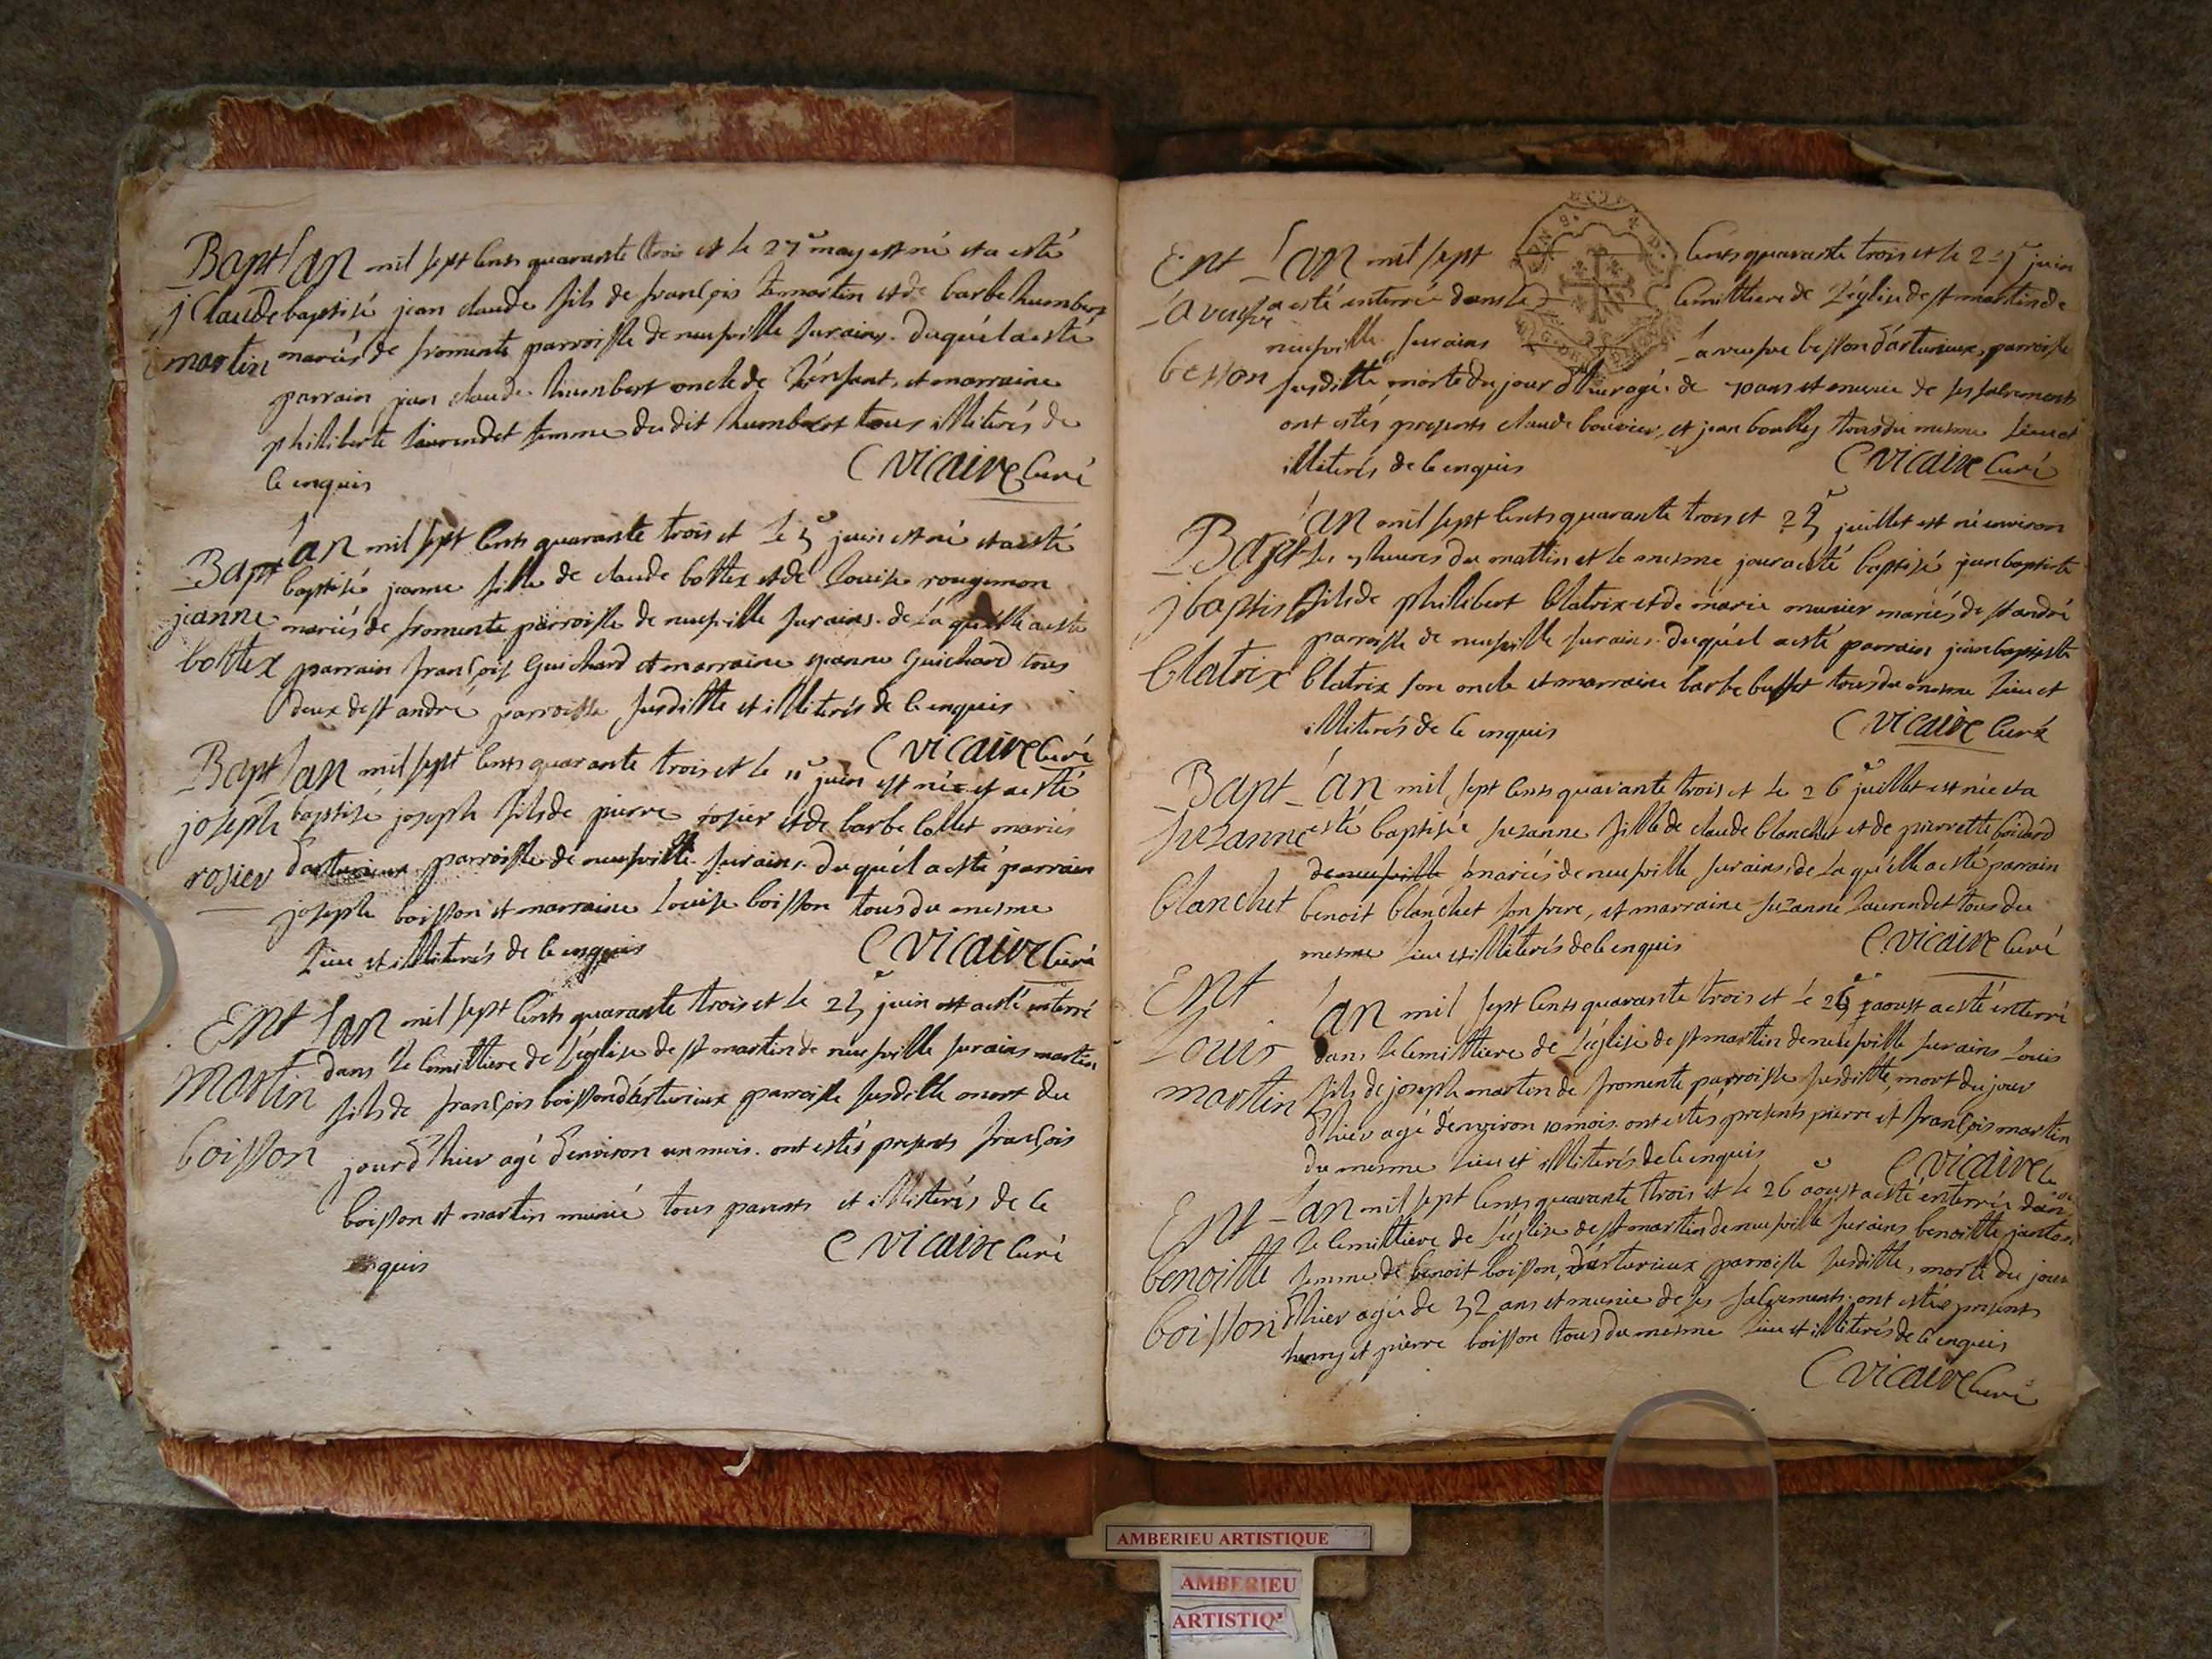 Bapt L'an mil sept cents quarante trois et le 27e may est né et a esté
j Claude baptisé jean claude fils de françois martin et de barbe humbert
martin mariés de fromente parroisse de neufville surains. duquél a esté
parrain jean claude humbert oncle de l'énfant, et marraine
philliberte laurendet femme du dit humbert tous illiterés de
ce enquis C vicaire Curé
L'an mil sept cents quarante trois et le 5e juin est né et a esté
Bapt baptisé jeanne fille de claude bottex et de Louise rougemon
jeanne mariés de fromente parroisse de neufville surains. de la quélle a esté
bottex parrain françois Guichard et marraine jeanne Guichard tous
deux de st andré parroisse susditte et illiterés de ce enquis
C vicaire Curé
Bapt L'an mil sept cents quarante trois et le 11e juin est né et a esté
joseph baptisé joseph fils de pierre rosier et de barbe Collet mariés
rosier d'arturieux parroisse de neufville surains. duquél a esté parrain
joseph boisson et marraine Louise boisson tous du mesme
Lieu et illiterés de ce enquis C vicaire Curé
Ent L'an mil sept cents quarante trois et le 25e juin a esté enterré
dans le Cemittiere de L'église de st martin de neufville surains martin
Martin fils de françois boisson d'arturieux parroisse susditte mort du
boisson jour d'hier agé d'environ un mois. ont estés presents françois
boisson et martin munié tous parents et illiterés de ce
enquis C vicaire Curé
Ent L'an mil sept cents quarante trois et le juin
La veufve a esté enterrée dans le Cemittiere de L'église de st martin de
neufville surains La veufve besson d'arturieux, parroisse
besson susditte, morte du jour d'hier agée de 70 ans et munie de ses sacrements
ont estés presents claude bouvier, et jean tous du mesme Lieu et
illiterés de ce enquis C vicaire Curé
L'an mil sept cents quarante trois et 25e juillet est né environ
Bapt les heures du mattin et le mesme jour a esté baptisé jean baptiste
j baptiste fils de phillibert Clatrix et de marie munier mariés de st andré
parroisse de neufville surains. duquél a esté parrain jean baptiste
Clatrix Clatrix son oncle et marraine barbe buffet tous du mesme Lieu et
illiterés de ce enquis C vicaire Curé
Bapt L'an mil sept cents quarante trois et le 26e juillet est née et a
suzanne esté baptisée suzanne fille de claude blanchet et de pierrette
de neufville mariés de neufville surains, de la quélle a esté parrain
blanchet benoit blanchet son frere, et marraine suzanne Laurendet tous du
mesme Lieu et illiterés de ce enquis C vicaire Curé
Ent
L'an mil sept cents quarante trois et le aoust a esté enterré
Louis dans le Cemittiere de L'église de st martin de neufville surains Louis
martin fils de joseph martin de fromente parroisse susditte, mort du jour
d'hier agé d'environ 10 mois. ont estés presents pierre et françois martin
du mesme Lieu et illiterés de ce enquis C vicaire
Ent L'an mil sept cents quarante trois et le 26e aoust a esté enterrée dans
le Cemittiere de L'église de st martin de neufville surains benoitte
benoitte femme de benoit boisson, d'arturieux parroisse susditte, morte du jour
boisson d'hier agée de 32 ans et munie de ses sacrements. ont estés presents
henry et pierre boisson tous du mesme Lieu et illiterés de ce enquis
C vicaire Curé
AMBERIEU ARTISTIQUE
AMBERIEU
ARTISTIQ